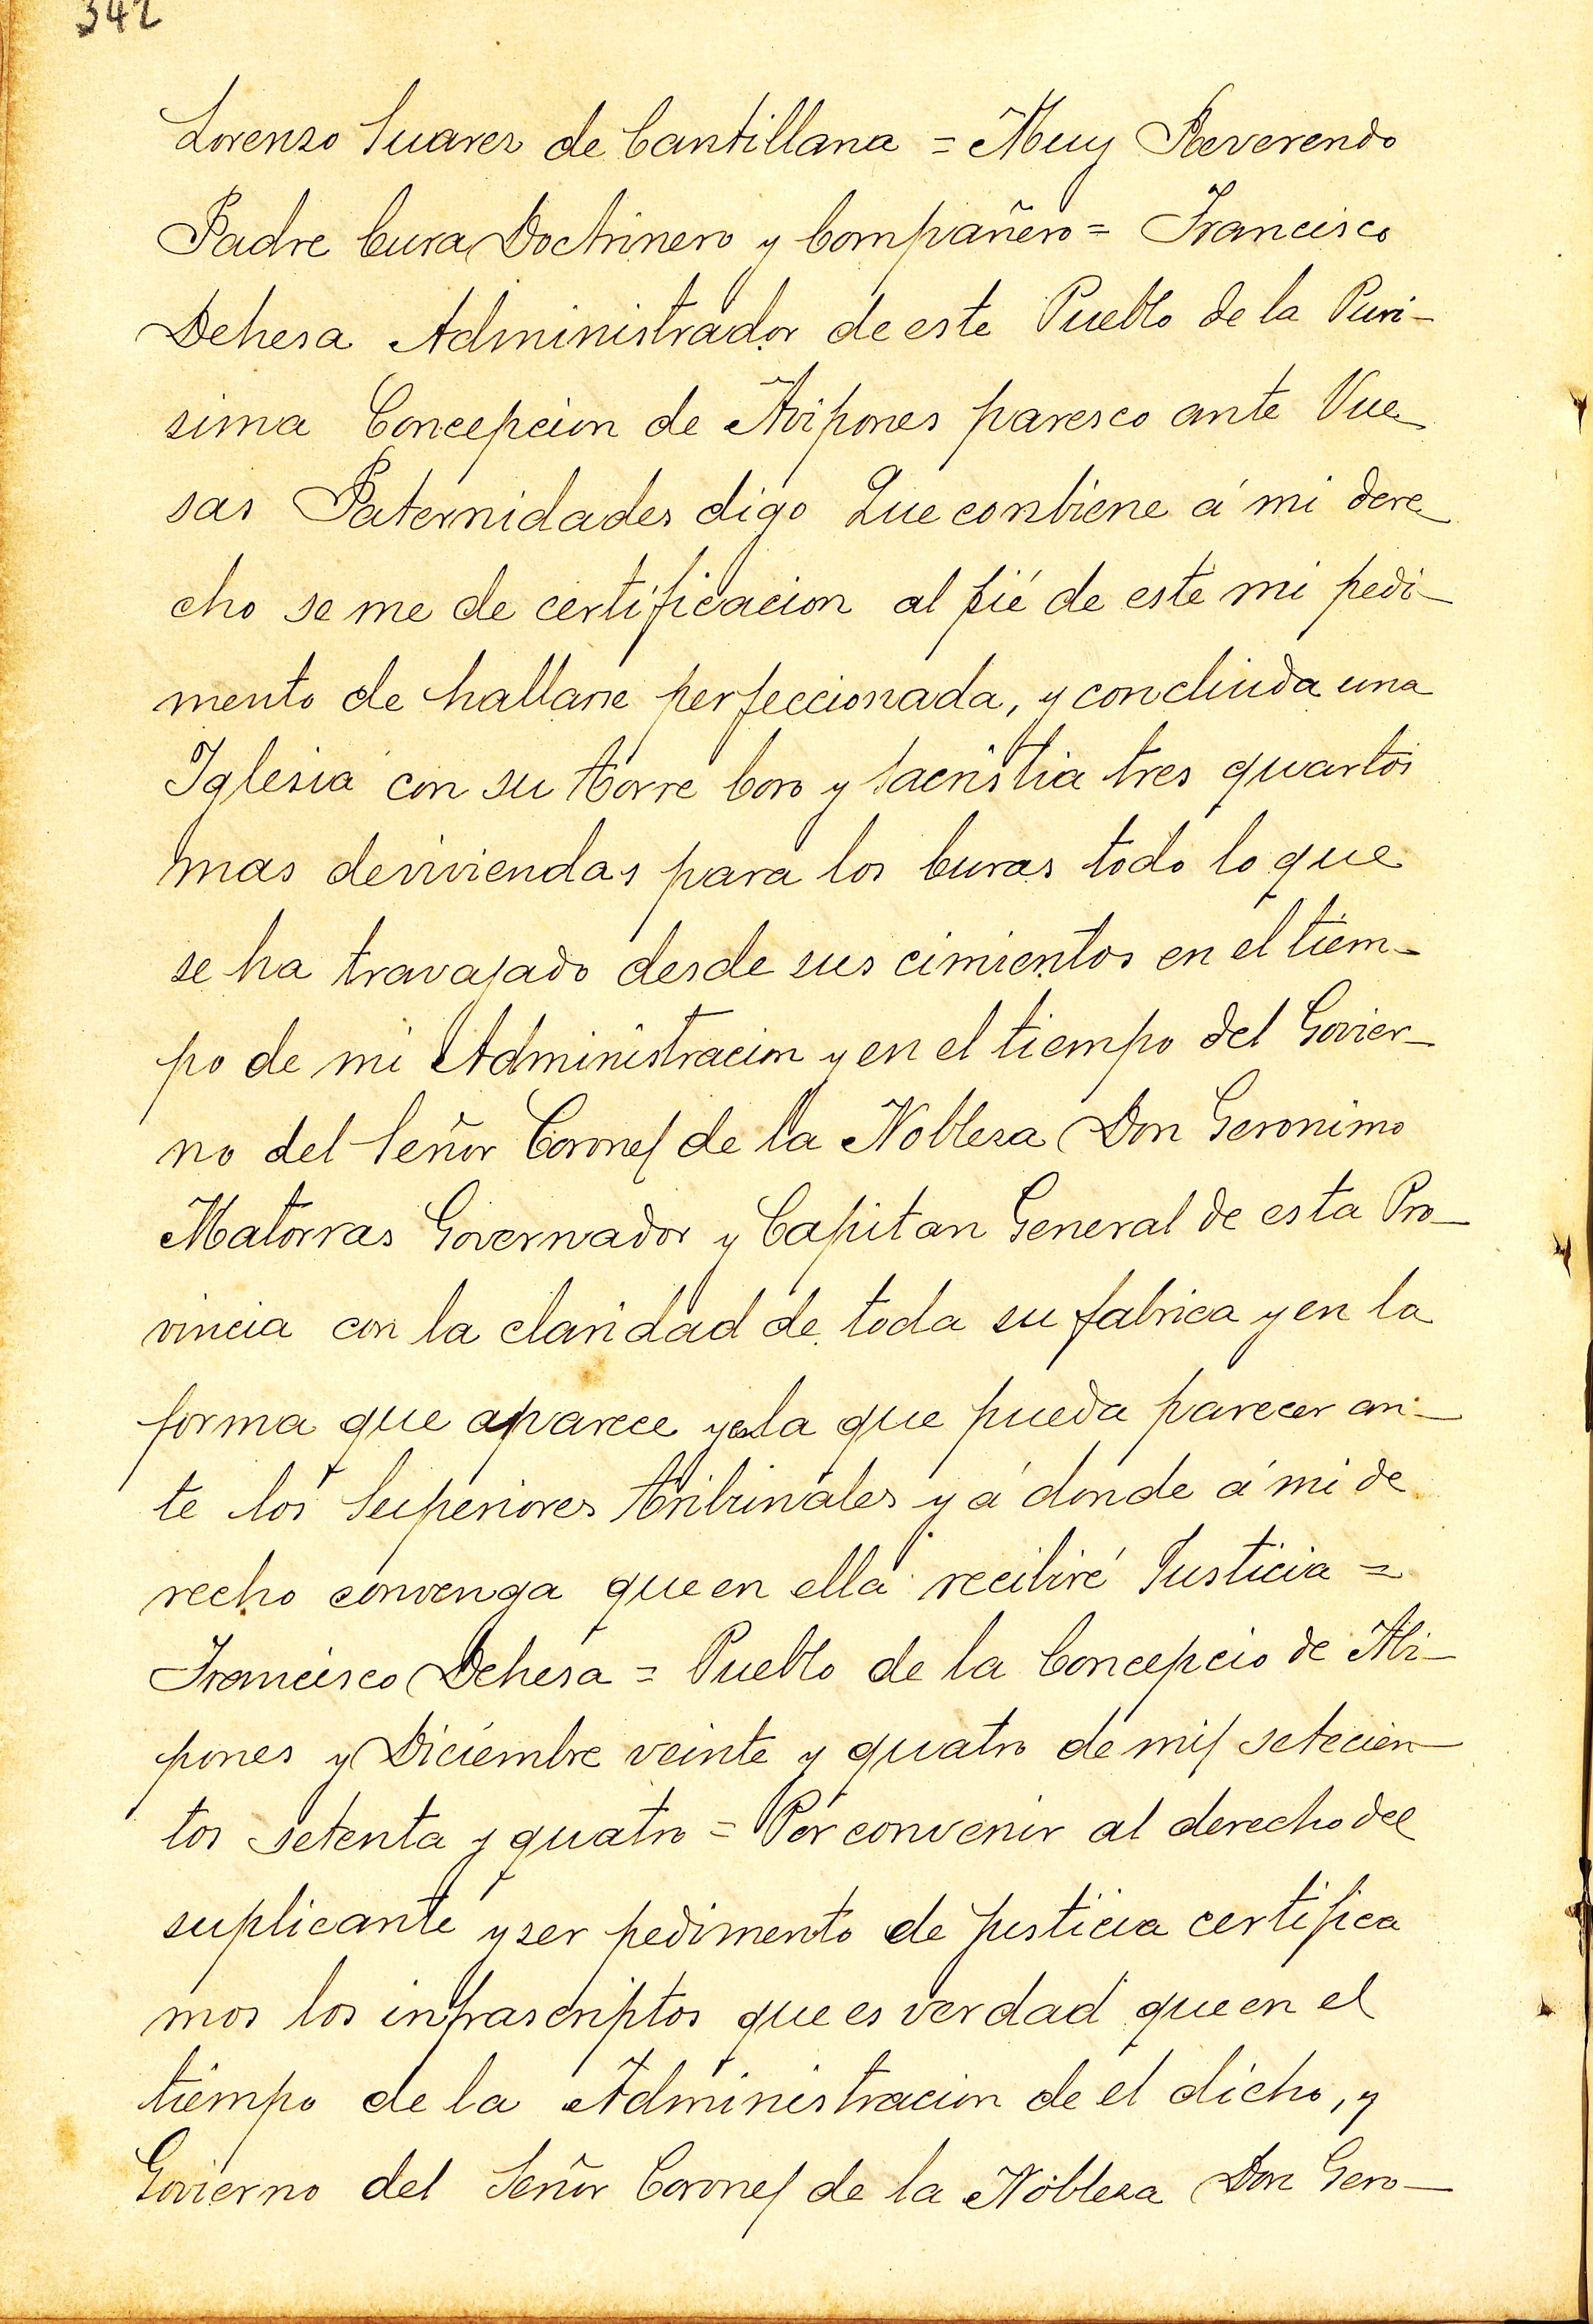 342
Lorenzo Suarez de Cantillana = Muy Reverendo
Padre Cura Doctrinero y Compañero = Francisco
Dehesa Administrador de este Pueblo de la Puri-
sima Concepcion de Avipones paresco ante Vue
sas Paternidades digo Que conbiene á mi dere
cho se me de certificacion al pié de este mi pedi-
mento de hallarse perfeccionada, y concluida una
Iglesia con su torre Coro y Sacristia tres quartos
mas deviviendas para los Curas todo lo que
se ha travajado desde sus cimientos en el tiem-
po de mi Administracion y en el tiempo del Govier-
no del Señor Coronel de la Nobleza Don Geronimo
Matorras Governador y Capitan General de esta Pro-
vincia con la claridad de toda su fabrica y en la
forma que aparece y esla que pueda parecer an-
te los Superiores tribunales y á donde á mi de
recho convenga que en ella recibiré Justicia =
Francisco Dehesa = Pueblo de la Concepcio de Abi-
pones y Diciembre veinte y quatro de mil setecien-
tos setenta y quatro = Por convenir al derecho del
suplicante y ser pedimento de justicia certifica
mos los infrascriptos que es verdad que en el
tiempo de la Administracion de el dicho, y
Govierno del Señor Coronel de la Nobleza Don Gero-